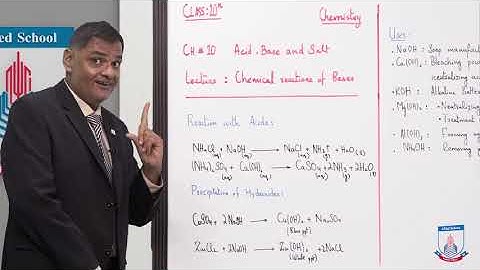 ed School
CLASS: 10th
Chemistry
CH # 10 Acid, Base and Salt
Lecture: Chemical reactions of Bases
Reaction with Acides:
NH₄Cl(aq) + NaOH(aq) → NaCl(aq) + NH₃↑(g) + H₂O(l)
(NH₄)₂SO₄ + Ca(OH)₂(aq) → CaSO₄(aq) + 2NH₃(g) + 2H₂O(l)
Precipitation of Hydroxides:
CuSO₄ + 2NaOH → Cu(OH)₂ + Na₂SO₄
(Blue ppt)
ZnCl₂ + 2NaOH → Zn(OH)₂ + 2NaCl
(White ppt)
Uses:
. NaOH: Soap manufact
. Ca(OH)₂: Bleaching pow
. KOH: Alkaline batte
. Mg(OH)₂: - Neutralizing
- treatment
. Al(OH)₃: Foaming ag
. NH₄OH: Removing